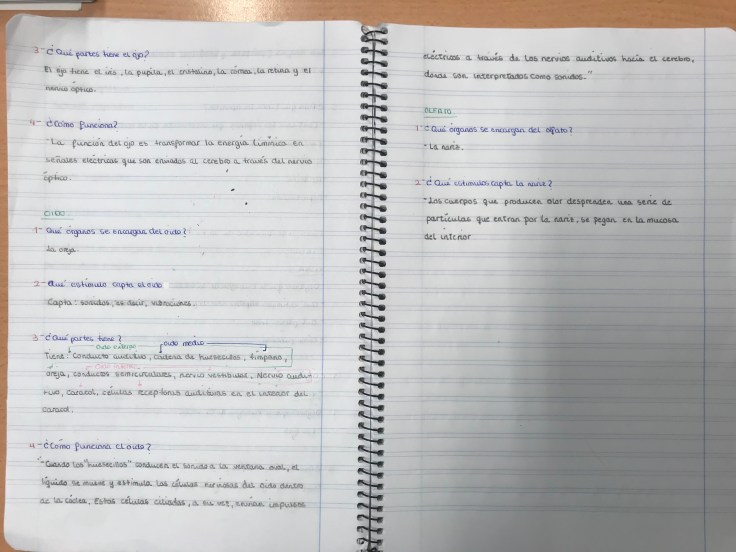 3- ¿Qué partes tiene el ojo?
El ojo tiene el iris, la pupila, el cristalino, la córnea, la retina y el
nervio óptico.
4- ¿Cómo funciona?
"La función del ojo es transformar la energía lumínica en
señales eléctricas que son enviadas al cerebro a través del nervio
óptico.
OIDO.
1- Qué órganos se encargan del oido?
La oreja
2- Qué estímulo capta el oido
Capta: sonidos, es decir, vibraciones.
3- ¿Qué partes tiene?
Oido externo oido medio
Tiene: Conducto auditivo, cadena de huesecillos, tímpano,
Oido interno
oreja, conductos semicirculares, nervio vestibular, Nervio audi-
tivo, caracol, células receptoras auditivas en el interior del
caracol.
4- ¿Cómo funciona el oido?
"Cuando los "huesecillos" conducen el sonido a la ventana oval, el
líquido se mueve y estimula las células nerviosas del oido dentro
de la cóclea. Estas células ciliadas, a su vez, envían impulsos
eléctricos a través de los nervios auditivos hacia el cerebro,
donde son interpretados como sonidos."
OLFATO.
1- ¿Qué órganos se encargan del olfato?
- La nariz.
2- ¿Qué estímulos capta la nariz?
- Los cuerpos que producen olor desprenden una serie de
partículas que entran por la nariz, se pegan en la mucosa
del interior